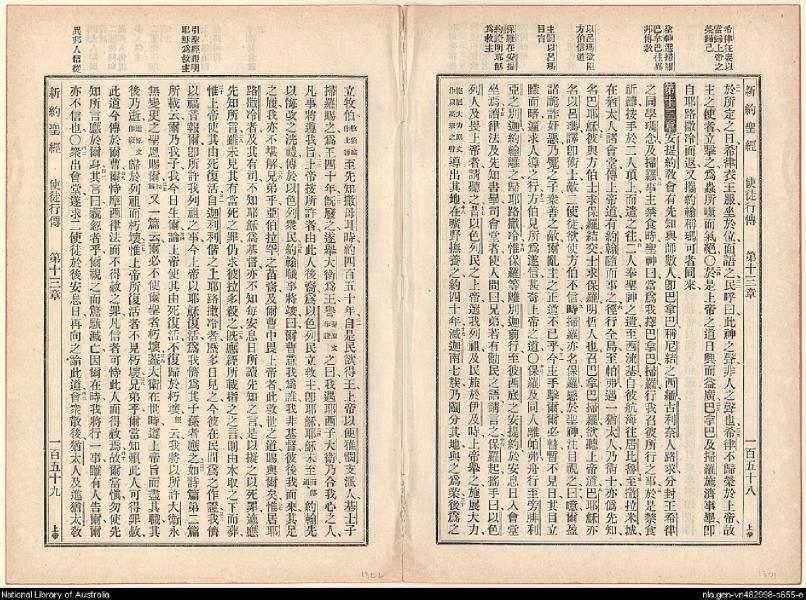 希律狂妄以
當歸上帝之
榮歸己
聖神選掃羅
巴拿巴往異
邦傳教
以呂瑪欲阻
方伯信道
主罰以呂瑪
目盲
保羅在安提
約證明耶穌
為救主
新約聖經 使徒行傳 第十三章 一百五十八 上帝
於所定之日希律衣王服坐於位而語之民呼曰此神之聲非人之聲也希律不歸榮於上帝故
主之使者立擊之為蟲所嚙而氣絕〇於是上帝之道日興而益廣巴拿巴及掃羅施濟事畢即
自耶路撒冷而返又攜約翰稱瑪可者同來
第十三章 安提約教會有先知與師數人即巴拿巴稱尼結之西緬古利奈人路求分封王希律
之同學瑪念及掃羅事主禁食時聖神曰當為我擇巴拿巴掃羅行我召彼所行之事於是禁食
祈禱按手於二人頂上而遣之往二人奉聖神之遣至西流基自彼航海往居比魯至撒拉米城
在猶太人諸會堂傳上帝道有約翰隨而事之徑行全島至帕弗遇一猶太人乃術士亦偽先知
名巴耶穌彼與方伯士求保羅結交士求保羅明哲人也召巴拿巴掃羅欲聽上帝道巴耶穌亦
名以呂瑪譯即術士敵二使徒欲使方伯不信時掃羅亦名保羅感於聖神注目視之曰噫爾盈
諸詭詐奸惡乃魔之子衆善之敵爾亂主之正道不已乎今主手擊爾爾必瞽暫不見日其目立
矇而暗遍求人導之行方伯見所為遂信甚奇上帝之道〇保羅及同人離帕弗舟行至旁腓利
亞之別迦約翰離之歸耶路撒冷保羅等離別迦前行至彼西底之安提約於安息日入會堂
坐焉讀律法及先知書畢司會堂者使人問曰兄弟若有勸民之語請言之保羅起搖手曰以色
列人及畏上帝者請聽之昔以色列民之上帝選我列祖及民旅於伊及時上帝舉之施展大力
導出其地在曠野撫養之約四十年滅迦南七族乃鬮分其地與之為業後為之
引聖經證明
耶穌為救主
異邦人信從
立牧伯至先知撒母耳時約四百五十年自是民欲得王上帝以便雅憫支派人基士子
掃羅賜之為王四十年既廢之遂舉大衛為王我遇耶西子大衛乃合我心之人
凡事將遵我旨上帝按所許者由此人後裔為以色列民立救主即耶穌耶穌未至約翰先
以悔改之洗禮傳於以色列衆民約翰職事將竣曰爾曹意我為誰我非基督彼後我而來其足
之履我亦不堪解兄弟乎亞伯拉罕之苗裔及爾曹中畏上帝者此救世之道賜與爾矣惟居耶
路撒冷者及其有司不知耶穌為基督亦不知每安息日所讀先知之言是以擬之以死罪遂應
先知所言雖未見其有當死之罪仍求彼拉多殺之既應經所載指之之言則由木取之下而葬
惟上帝使其由死復活自加利利偕之上耶路撒冷者歷多日見之今彼在民間為之作證我儕
以福音報爾即所許我列祖之事今上帝以耶穌復活為我儕為其子孫者應之如詩篇第二篇
所載云爾乃我子我今日生爾論上帝使其由死復活不復歸於朽壞云我將以所許大衛永
無變更之聖恩賜爾又一篇云爾必不使爾聖者朽壞蓋大衛在世時遵上帝旨而盡其職其
後乃逝歸於列祖而朽壞惟上帝所復活者不見朽壞兄弟乎爾當知賴此人可得罪赦
此道今傳於爾曹爾恃摩西律法而不得赦之罪凡信者可恃此人而得赦焉故爾當慎勿使先
知所言應於爾身其言曰藐忽者乎爾視之而驚駭滅亡因爾在時我將行一事雖有人告爾爾
亦不信也〇衆出會堂遂求二使徒於後安息日再向之論此道會衆散後猶太人及進猶太教
新約聖經 使徒行傳 第十三章 一百五十九 上帝
1302
1301
National Library of Australia
nla.gen-vn482998-s655-e